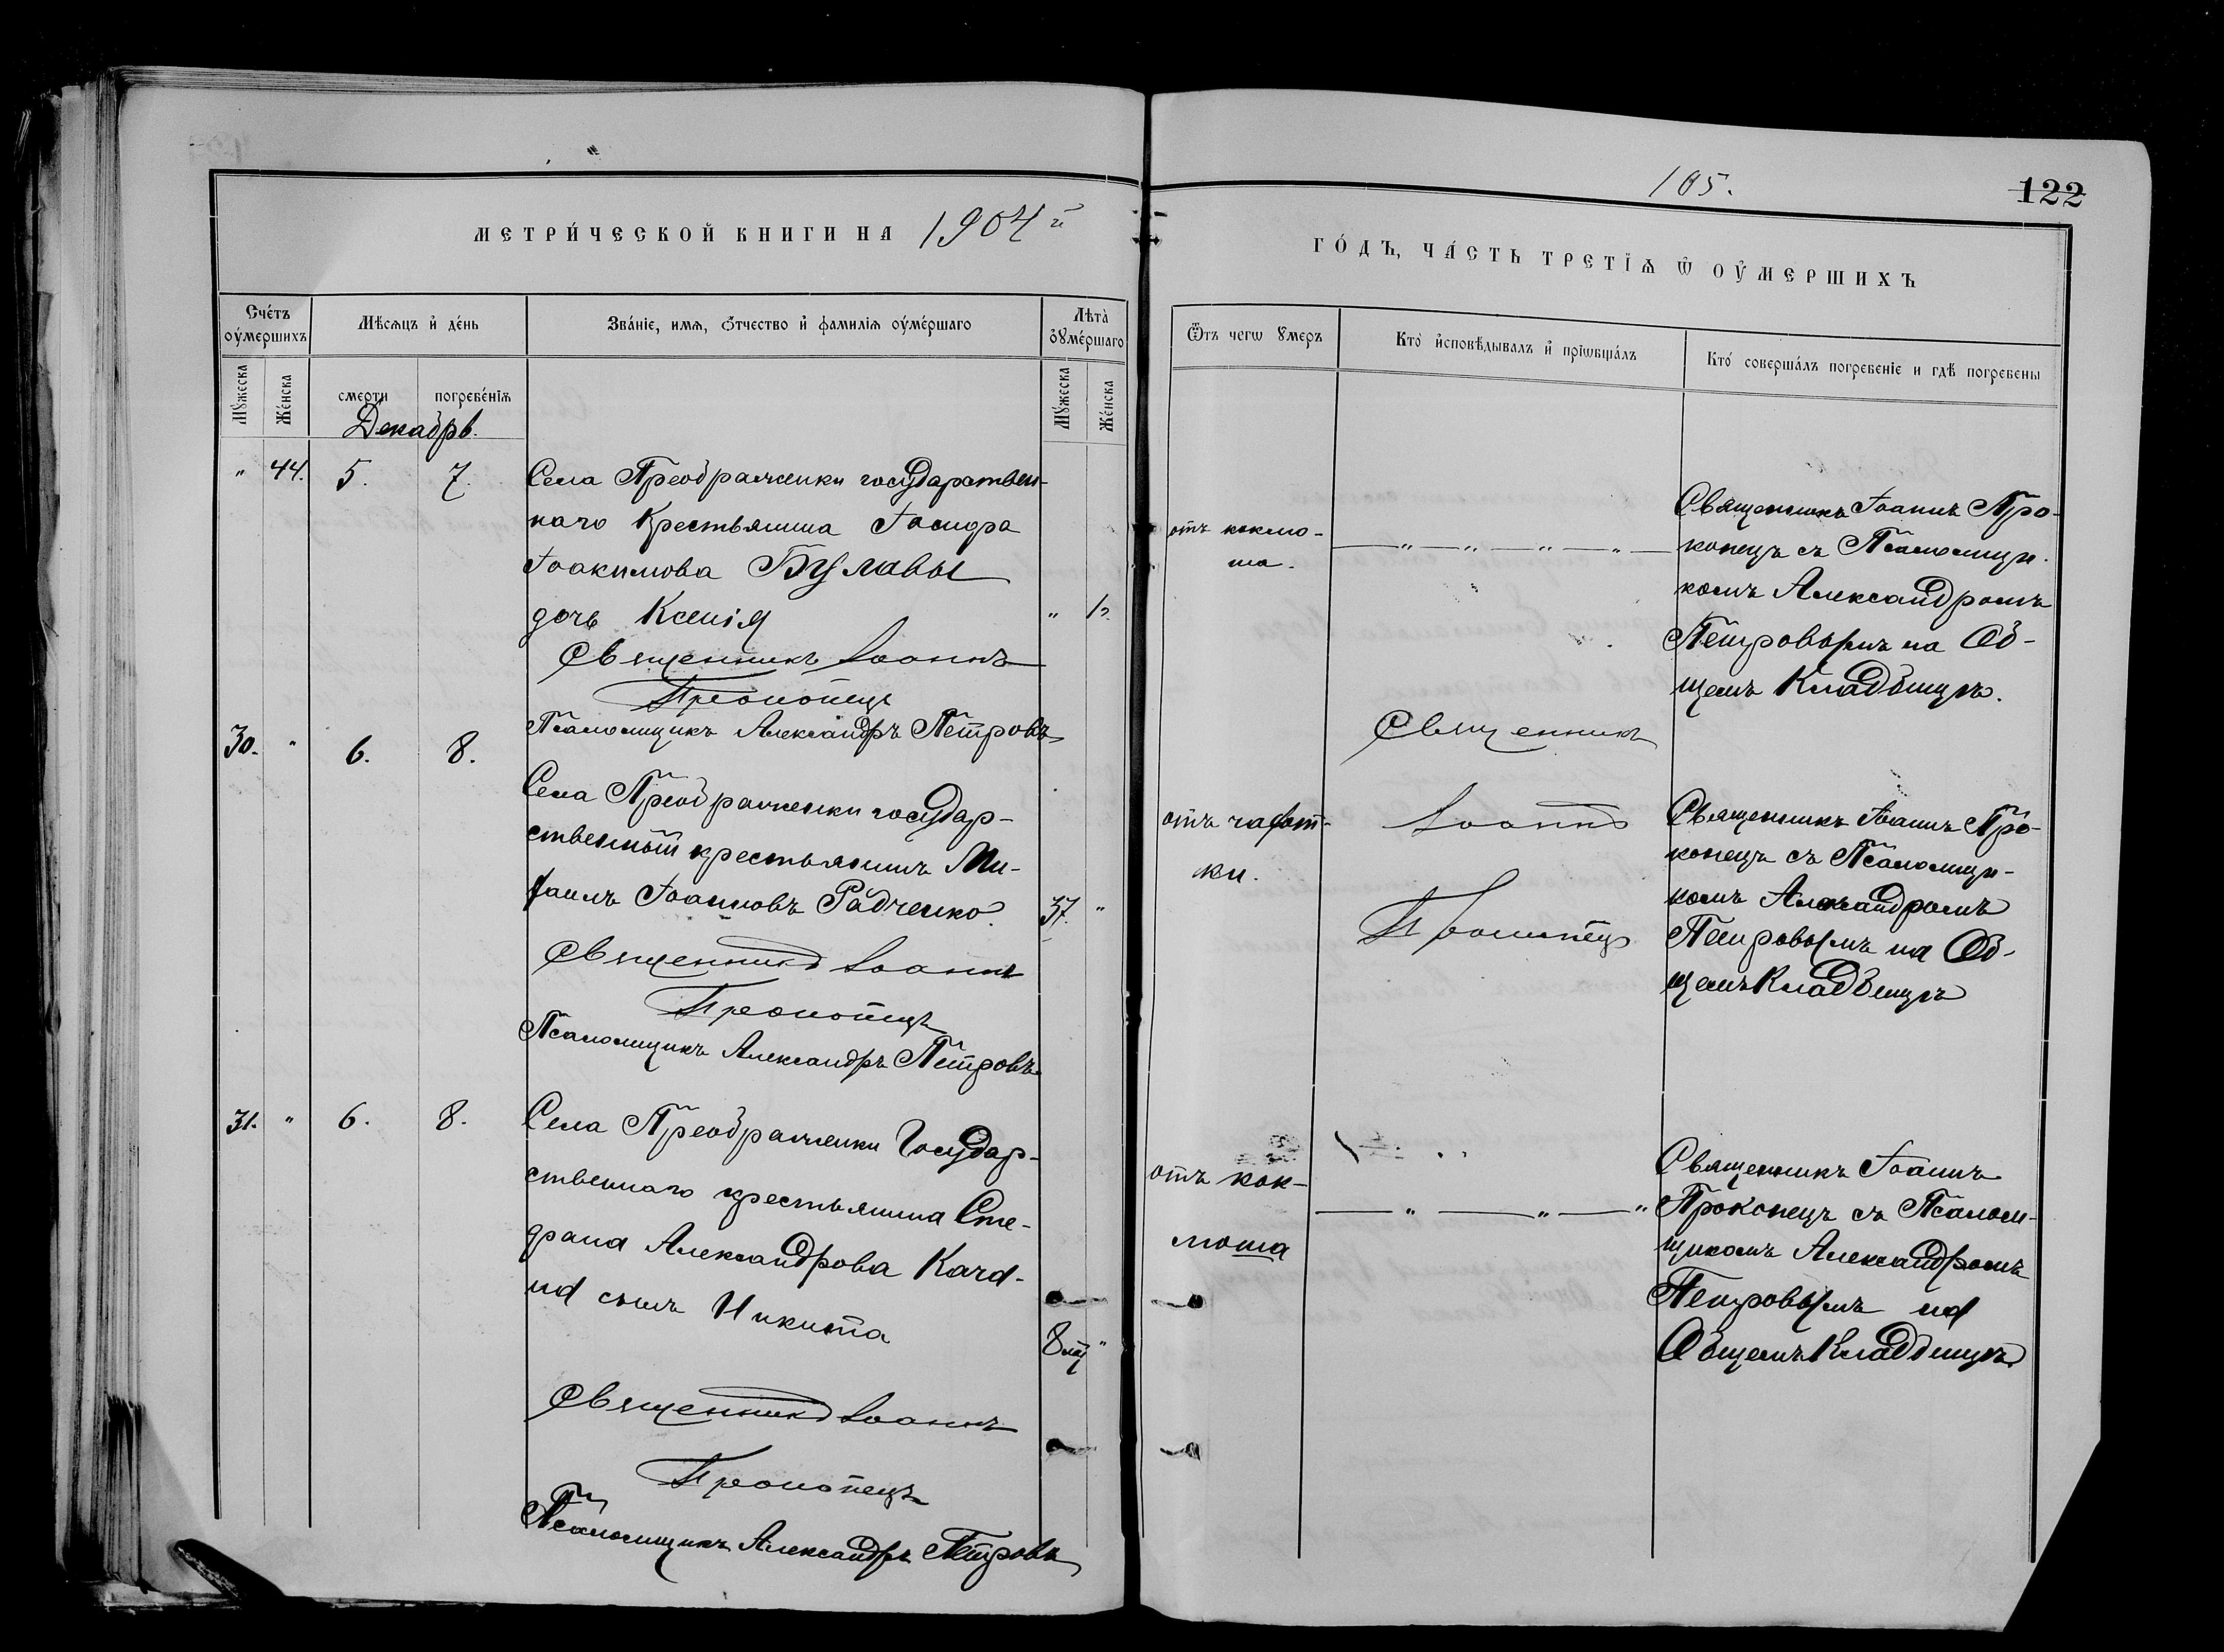 105.
122
МЕТРИ́ЧЕСКОЙ КНИГИ НА 1904й
ГО́ДЪ, ЧА́СТЬ ТРЕТІѦ Ѡ ОУ҆МЕРШИХЪ
Сче́тъ оу҆ме́ршихъ
Мѣ́сѧцъ и҆ де́нь
Зва́нїе, имѧ, ѻ҆́тчество и҆ фамилїѧ оу҆ме́ршаго
Лѣта̀ оу҆ме́ршаго
Ѿ чегѡ ᲂумеръ
Кто̀ и҆сповѣ́дывалъ и҆ прїѡбща́лъ
Кто́ соверша́лъ погребенїе и гдѣ̀ погребены
Мꙋ́жеска
Же́нска
смерти
погребе́нїѧ
Мꙋ́жеска
Же́нска
Декабрь.
" 44. 5. 7.
Села Преображенки государствен-
наго крестьянина Іосифа
Іоакимова Булавы
дочь Ксенія
" 1/2
Священникъ Іоаннъ
Прокопецъ
Псаломщикъ Александръ Петровъ
отъ коклю-
ша.
Священникъ Іоаннъ Про-
копецъ съ Псаломщи-
комъ Александромъ
Петровымъ на Об-
щемъ Кладбищѣ.
30. " 6. 8.
Села Преображенки государ-
ственный крестьянинъ Ми-
хаилъ Іоанновъ Радченко
37. "
Священникъ Іоаннъ
Прокопецъ
Псаломщикъ Александръ Петровъ
отъ чахот-
ки.
Священникъ
Іоаннъ
Прокопецъ
Священникъ Іоаннъ Про-
копецъ съ Псаломщи-
комъ Александромъ
Петровымъ на Об-
щемъ Кладбищѣ
31. " 6. 8.
Села Преображенки Государ-
ственнаго крестьянина Сте-
фана Александрова Кача-
на сынъ Никита
8 мц "
Священникъ Іоаннъ
Прокопецъ
Псаломщикъ Александръ Петровъ
отъ кок-
люша
Священникъ Іоаннъ
Прокопецъ съ Псалом-
щикомъ Александромъ
Петровымъ на
Общемъ Кладбищѣ